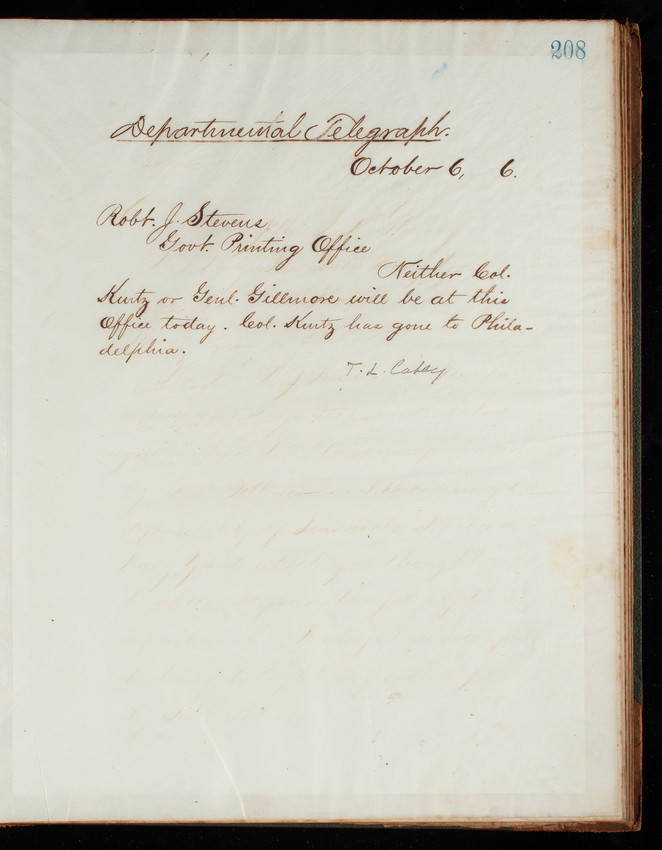 208
Departmental Telegraph.
October 6, 6.
Robt. J. Stevens
Govt. Printing Office
Neither Col.
Kurtz or Genl. Gillmore will be at this
Office today. Col. Kurtz has gone to Phila-
delphia.
T. L. Casey